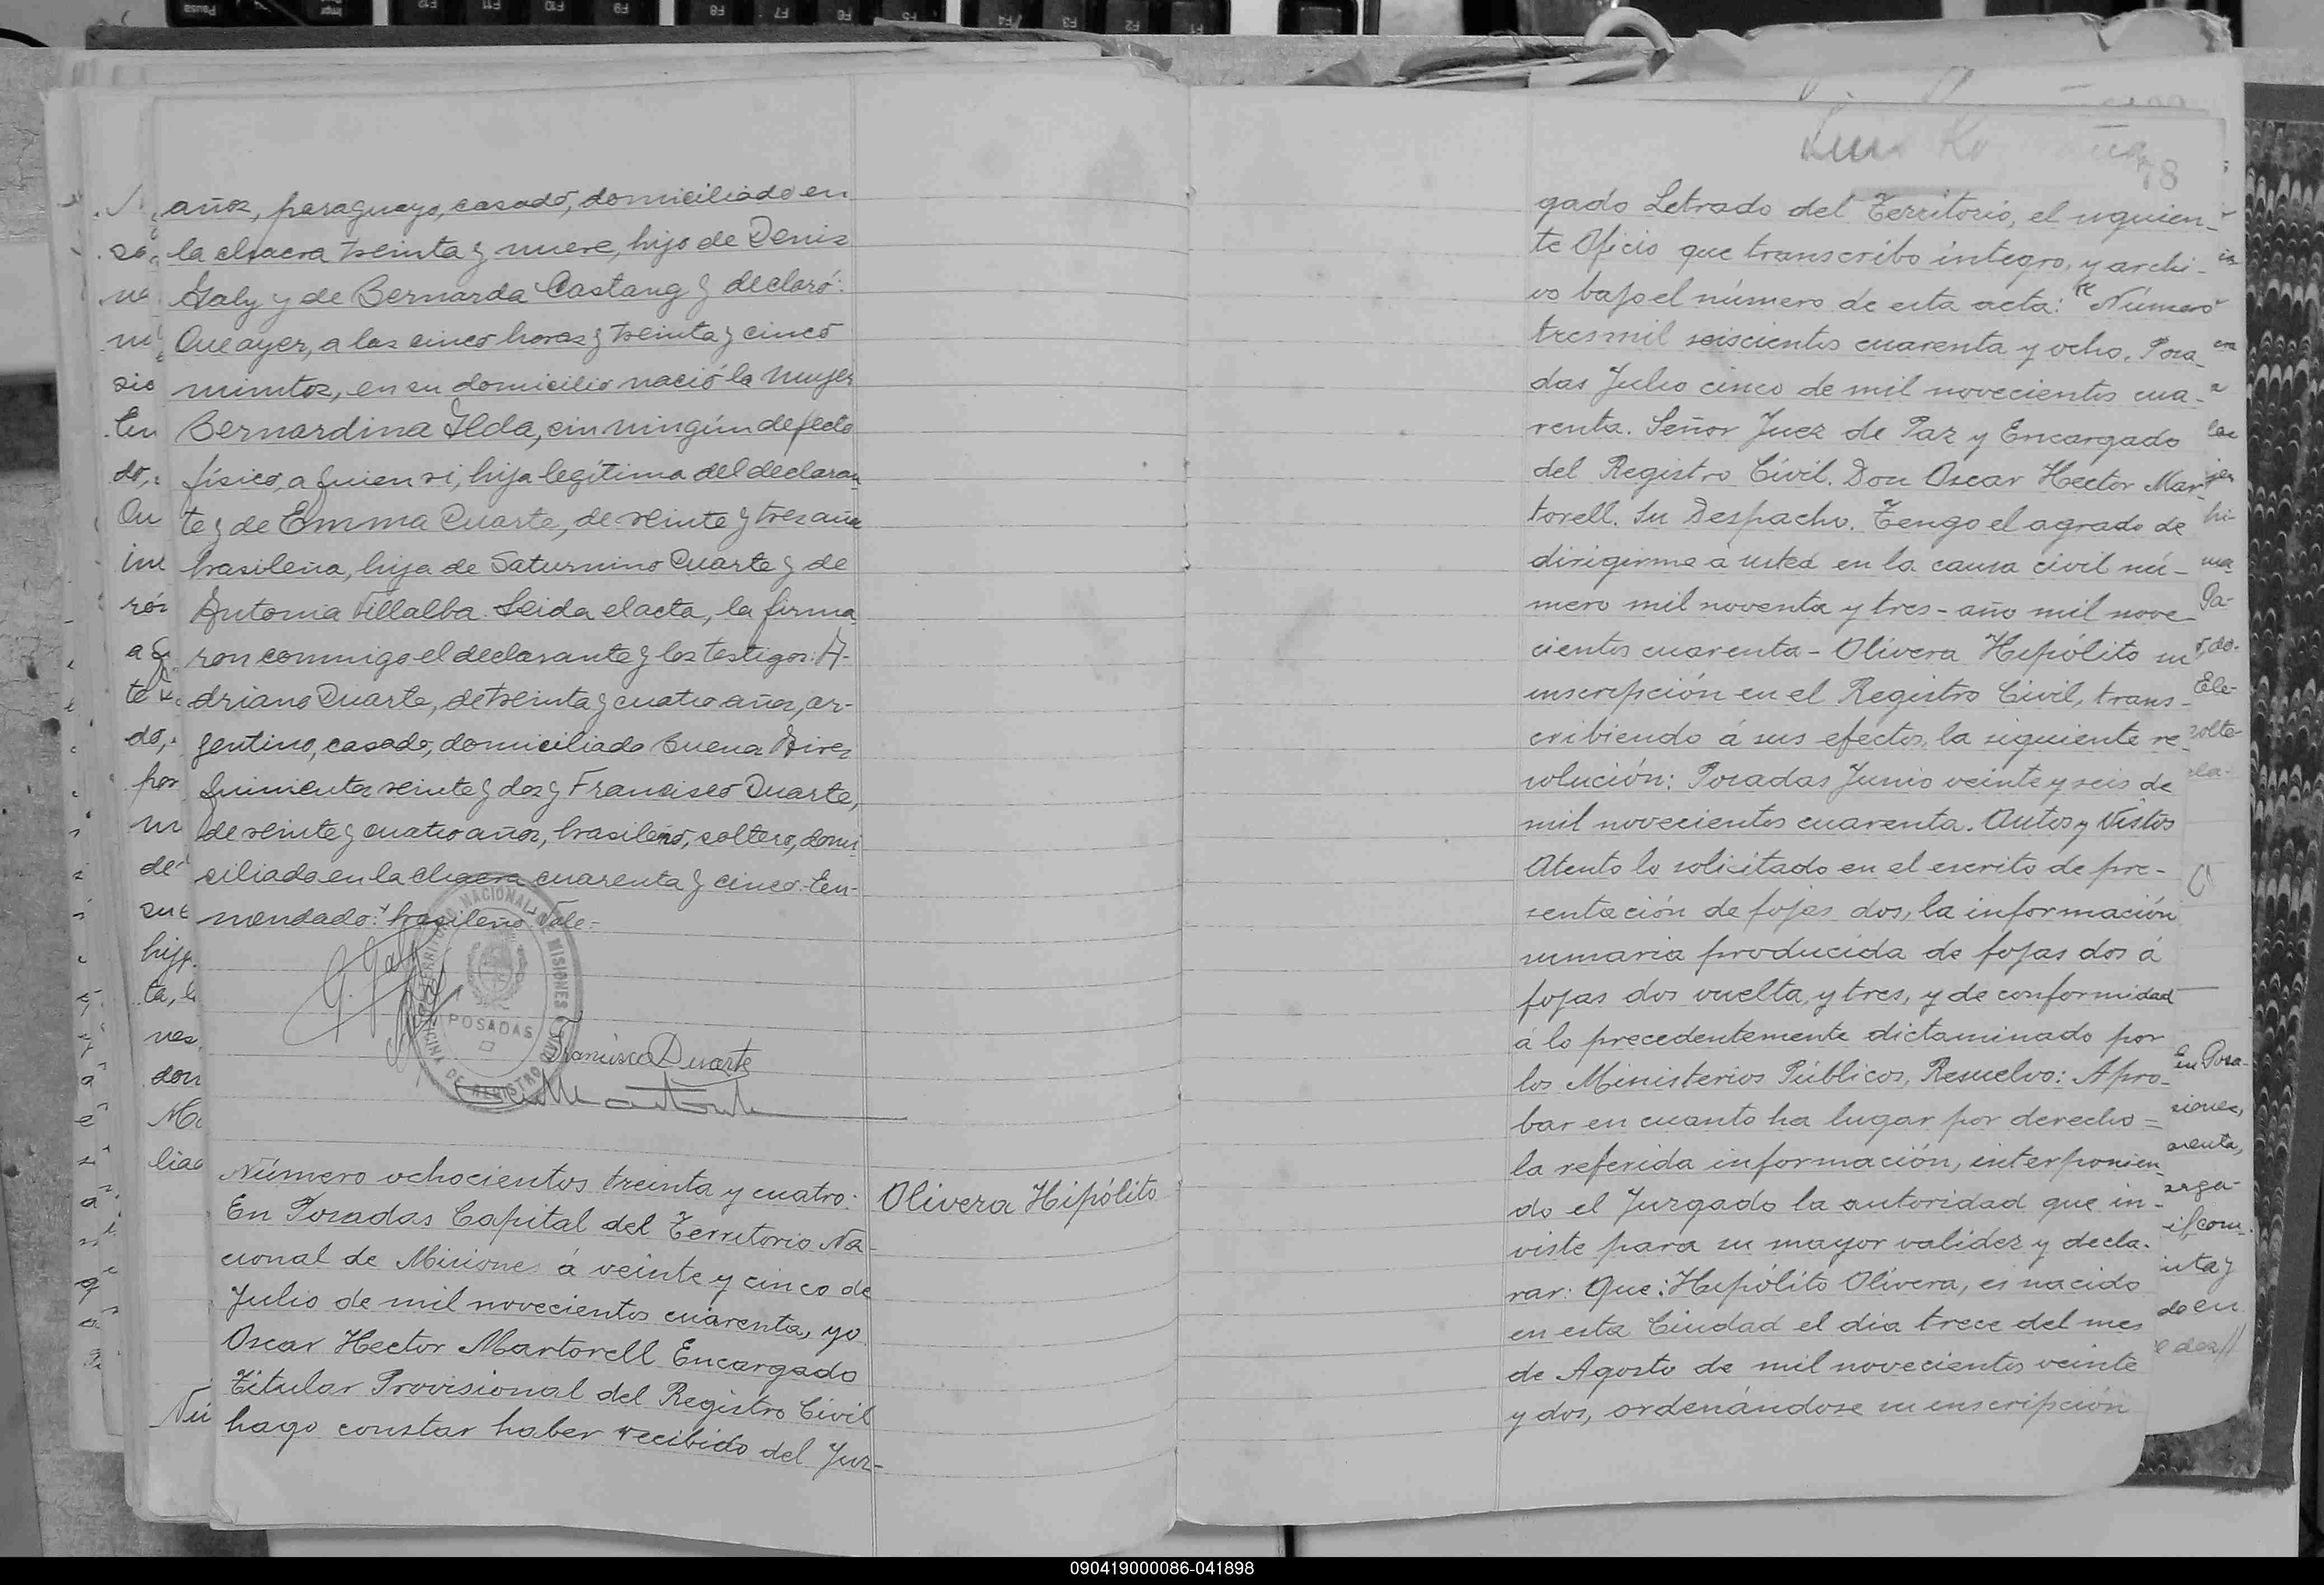 años, paraguayo, casado, domiciliado en
la chacra treinta y nueve, hijo de Denis
Galy y de Bernarda Castang y declaró:
Que ayer, a las cinco horas y treinta y cinco
minutos, en su domicilio nació la mujer
Bernardina Ilda, sin ningún defecto
físico, a quien vi, hija legítima del declaran
te y de Emma Duarte, de veinte y tres años
brasileña, hija de Saturnino Duarte y de
Antonia Villalba. Leida el acta, la firma
ron conmigo el declarante y los testigos: A-
driano Duarte, de treinta y cuatro años, ar-
gentino, casado, domiciliado Buenos Aires
quinientos veinte y dos y Francisco Duarte,
de veinte y cuatro años, brasileño, soltero, domi
ciliado en la chacra cuarenta y cinco. En-
mendado: "brasileño" Vale=
G. Galy
TERRITORIO NACIONAL DE MISIONES
POSADAS
OFICINA DE REGISTRO CIVIL
Francisco Duarte
Número ochocientos treinta y cuatro:
Olivera Hipólito
En Posadas Capital del Territorio Na-
cional de Misiones á veinte y cinco de
Julio de mil novecientos cuarenta, yo
Oscar Hector Martorell Encargado
Titular Provisional del Registro Civil
hago constar haber recibido del Juz-
78
gado Letrado del Territorio, el siguien-
te Oficio que transcribo íntegro, y archi-
vo bajo el número de esta acta: "Número
tres mil seiscientos cuarenta y ocho. Posa
das Julio cinco de mil novecientos cua-
renta. Señor Juez de Paz y Encargado
del Registro Civil. Don Oscar Hector Mar-
torell. Su Despacho. Tengo el agrado de
dirigirme a usted en la causa civil nú-
mero mil noventa y tres - año mil nove-
cientos cuarenta - Olivera Hipólito su
inscripción en el Registro Civil, trans-
cribiendo á sus efectos, la siguiente re-
solución: Posadas Junio veinte y seis de
mil novecientos cuarenta. Autos y Vistos
Atento lo solicitado en el escrito de pre-
sentación de fojas dos, la información
sumaria producida de fojas dos á
fojas dos vuelta, y tres, y de conformidad
á lo precedentemente dictaminado por
los Ministerios Públicos, Resuelvo: Apro-
bar en cuanto ha lugar por derecho =
la referida información, interponien-
do el Juzgado la autoridad que in-
viste para su mayor validez y decla-
rar: Que: Hipólito Olivera, es nacido
en esta Ciudad el dia trece del mes
de Agosto de mil novecientos veinte
y dos, ordenándose su inscripción
090419000086-041898